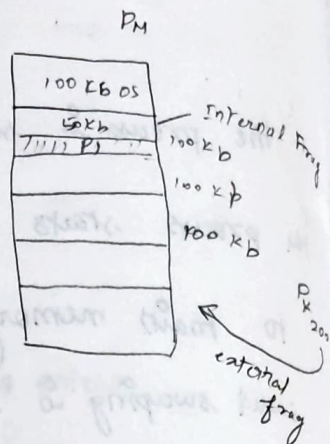 PM
100 Kb OS
50 Kb
Internal Frag
P1
100 Kb
100 Kb
100 Kb
P
external
frag